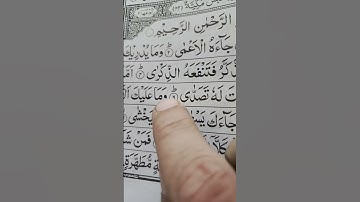 الرَّحْمٰنِ الرَّحِيْمِ
جَآءَهُ الْاَعْمٰى ۟ؕ۲ وَمَا يُدْرِيْكَ
ذَّكَّرُ فَتَنْفَعَهُ الذِّكْرٰى ؕ۴ اَمَّا
تَ لَهٗ تَصَدّٰى ؕ۶ وَمَا عَلَيْكَ
جَآءَكَ يَسْ يَخْشٰى
كَلَّا فَمَنْ شَ
ةٍ مُّطَهَّرَةٍ